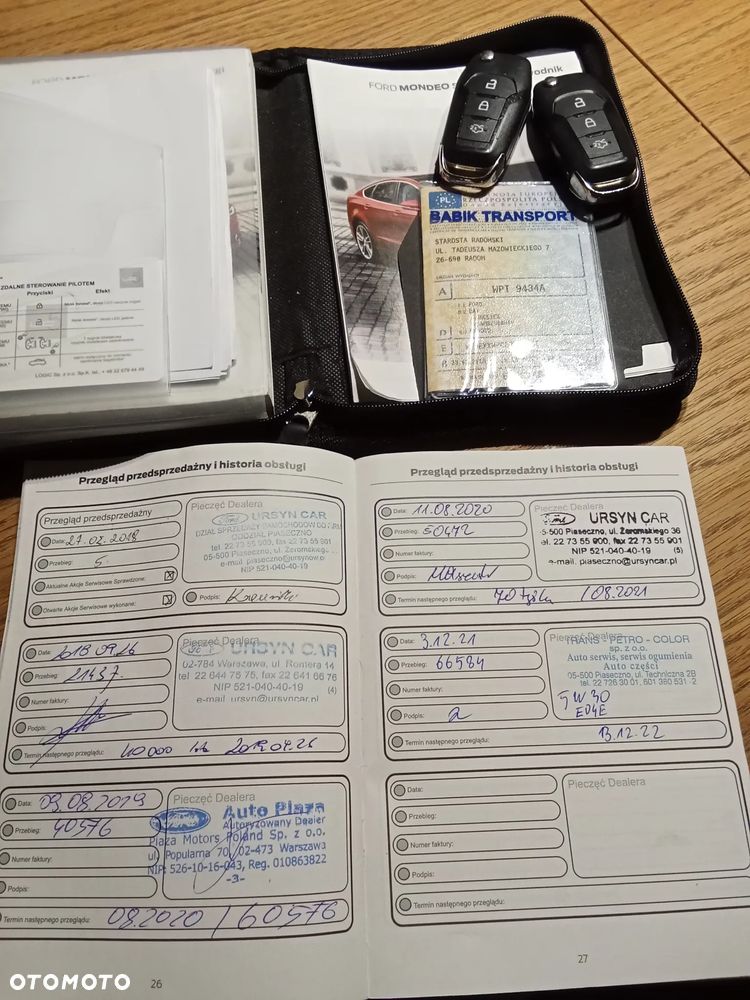 FORD MONDEO
PL
RZECZPOSPOLITA POL
BABIK TRANSPORT
STAROSTA RADOMSKI
UL. TADEUSZA MAZOWIECKIEGO 7
26-600 RADOM
A WPI 9434A
ZDALNE STEROWANIE PILOTEM
Przyciski Efekt
LOGIC Sp. z o.o. Sp.k. tel.
Przegląd przedsprzedażny i historia obsługi
Przegląd przedsprzedażny
Data: 27.02.2018
Przebieg: 5.
Aktualne Akcje Serwisowe Sprawdzone: X
Otwarte Akcje Serwisowe wykonane: X
Pieczęć Dealera
Ford URSYN CAR
ODDZIAŁ PIASECZNO
tel. 22 73 55 900, fax 22 73 55 901
05-500 Piaseczno, ul. Żeromskiego
NIP 521-040-40-19
e-mail: piaseczno@ursyn
Podpis:
Data: 2018.09.26
Przebieg: 21437.
Numer faktury:
Podpis:
Termin następnego przeglądu: 40 000 lub 2019.09.26
Pieczęć Dealera
URSYN CAR
02-784 Warszawa, ul. Romera 14
tel. 22 644 75 75, fax 22 641 66 76
NIP 521-040-40-19 (4)
e-mail ursyn@ursyncar.pl
Data: 09.08.2019
Przebieg: 40576
Numer faktury:
Podpis:
Termin następnego przeglądu: 08.2020 / 60576
Pieczęć Dealera
Ford Auto Plaza
Autoryzowany Dealer
Plaza Motors Poland Sp. z o.o.
ul. Popularna 70, 02-473 Warszawa
NIP: 526-10-16-043, Reg. 010863822
-3-
26
Przegląd przedsprzedażny i historia obsługi
Data: 11.08.2020
Przebieg: 50472
Numer faktury:
Podpis:
Termin następnego przeglądu: 70 tyś km / 08.2021
Pieczęć Dealera
URSYN CAR
05-500 Piaseczno, ul. Żeromskiego 36
tel. 22 73 55 900, fax 22 73 55 901
NIP 521-040-40-19 (5)
e-mail: piaseczno@ursyncar.pl
Data: 3.12.21
Przebieg: 66584
Numer faktury:
Podpis:
Termin następnego przeglądu: 13.12.22
Pieczęć Dealera
TRANS - PETRO - COLOR
sp. z o.o.
Auto serwis, serwis ogumienia
Auto części
05-500 Piaseczno, ul. Techniczna 2B
tel. 22 726 30 01, 501 380 531 -2
5W30
Data:
Przebieg:
Numer faktury:
Podpis:
Termin następnego przeglądu:
Pieczęć Dealera
27
OTOMOTO